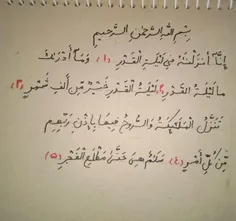 بِسْمِ اللَّهِ الرَّحْمَٰنِ الرَّحِيمِ
إِنَّا أَنزَلْنَاهُ فِي لَيْلَةِ الْقَدْرِ (١) وَمَا أَدْرَاكَ
مَا لَيْلَةُ الْقَدْرِ (٢) لَيْلَةُ الْقَدْرِ خَيْرٌ مِّنْ أَلْفِ شَهْرٍ (٣)
تَنَزَّلُ الْمَلَائِكَةُ وَالرُّوحُ فِيهَا بِإِذْنِ رَبِّهِم
مِّن كُلِّ أَمْرٍ (٤) سَلَامٌ هِيَ حَتَّىٰ مَطْلَعِ الْفَجْرِ (٥)